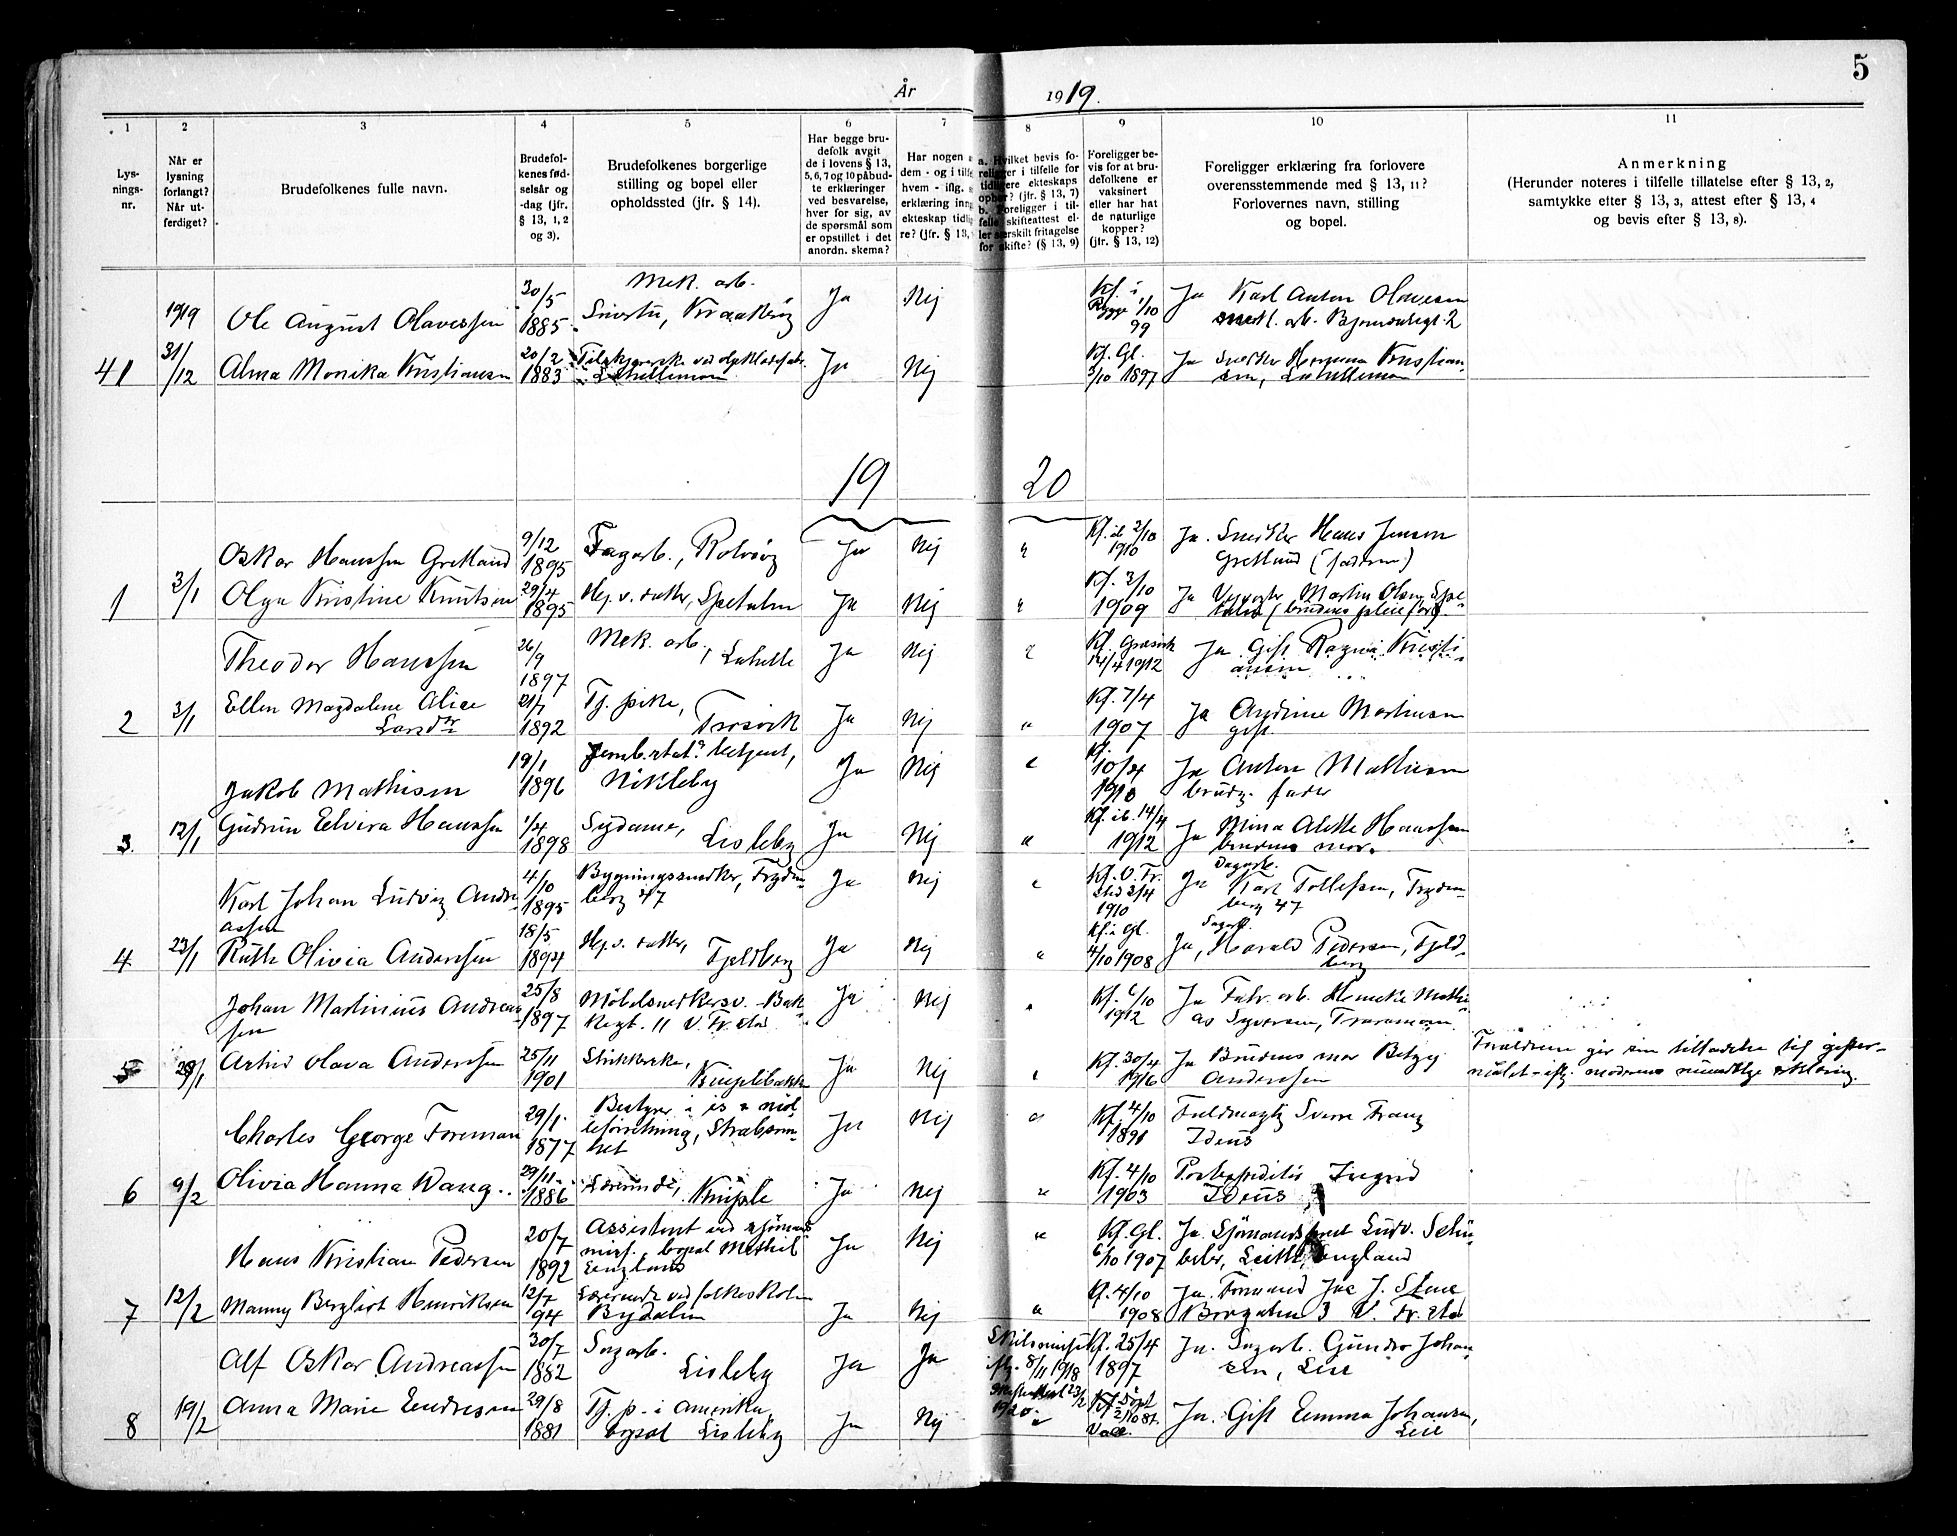 5
År 1919.
1 2 3 4 5 6 7 8 9 10 11
Lys-
nings-
nr.
Når er
lysning
forlangt?
Når ut-
ferdiget?
Brudefolkenes fulle navn.
Brudefol-
kenes fød-
selsår og
-dag (jfr.
§ 13, 1, 2
og 3).
Brudefolkenes borgerlige
stilling og bopel eller
opholdssted (jfr. § 14).
Har begge bru-
defolk avgit
de i lovens § 13,
5, 6, 7 og 10 påbud-
te erklæringer
ved besvarelse,
hver for sig, av
de spørsmål som
er opstillet i det
anordn. skema?
Har nogen
dem - og i tilf
hvem - iflg.
erklæring inng
ekteskap tidlig
re? (jfr. § 13,
a. Hvilket bevis fo-
religger i tilfelle for
tidligere ekteskaps
ophør? (jfr. § 13, 7)
b. Foreligger i til-
felle skifteattest el-
ler særskilt fritagelse
for skifte? (§ 13, 9)
Foreligger be-
vis for at bru-
defolkene er
vaksinert
eller har hat
de naturlige
kopper?
(jfr. § 13, 12)
Foreligger erklæring fra forlovere
overensstemmende med § 13, 11?
Forlovernes navn, stilling
og bopel.
Anmerkning
(Herunder noteres i tilfelle tillatelse efter § 13, 2,
samtykke efter § 13, 3, attest efter § 13, 4
og bevis efter § 13, 8).
1919 Ole August Olavessen 30/5 1885 Mek. arb. Ja Nej Kf. i Rygge 1/10 99 Ja Karl Anton Olavesen
41 31/12 Alma Monika Kristiansen 20/2 1883 Ja Nej Kf. Gl. 3/10 1897 Ja Snedker Herman Kristian-
sen,
19 20
Oskar Hanssen Gretland 9/12 1895 Fagarb., Rolvsøy Ja Nej " Kf. 2/10 1910 Ja. Snedker Hans Jensen
Gretland (faderen)
1 3/1 Olga Kristine Knutsen 29/4 1895 Hj. v. Spetalen Ja Nej " Kf. 3/10 1909 Ja Martin Olsen, Spe-
(brudens pleiefar)
Theodor Hanssen 26/9 1897 Mek. arb., Ja Nej " Kf. Græsvik 14/4 1912 Ja Gift Ragna Kristi-
ansen
2 3/1 Ellen Magdalene Alice 21/7 1892 Tj. pike, Trosvik Ja Nej " Kf. 7/4 1907 Ja Andrine Martinsen
gift
Jakob Mathisen 19/1 1896 betjent,
Nikleby Ja Nej " Kf. 10/4 1910 Ja Anton Mathisen
brudg. fader
3 12/1 Gudrun Elvira Hanssen 1/4 1898 Sydame, Lisleby Ja Nej " Kf. ib. 14/4 1912 Ja Mina Alette Hanssen
brudens mor.
Karl Johan Ludvig Andre-
assen 4/10 1895 Bygningssnedker, Frydenberg 47 Ja Nej " Kf. V. Fr.stad 3/4 1910 Ja Dagarb. Karl Tollefsen, Fryden-
berg 47
4 23/1 Ruth Olivia Andersen 18/5 1894 Hj. v. Fjeldberg Ja Nej " Kf. i Gl. 4/10 1908 Ja, Harald Pedersen, Fjeld-
berg
Johan Martinius Andreas-
sen 25/8 1897 Möbelsnedkersv. Bak-
kegt. 11 V. Fr.stad Ja Nej " Kf. 6/10 1912 Ja Fabr. arb. Mathi-
as Syversen,
5 28/1 Astrid Olava Anderssen 25/11 1901 Ja Nej " Kf. 30/4 1916 Ja Brudens mor Betzy
Anderssen
Foreldrene gir sin tilladelse til gifter-
målet - iflg. moderens mundtlige erklæring.
Charles George Foreman 29/1 1877 Bestyrer Ja Nej " Kf. 4/10 1891 Fuldmægtig Sverre Franz
Ideus
6 9/2 Olivia Hanna Wang 29/11 1886 Lærerinde, Kniple Ja Nej " Kf. 4/10 1903 Postexpeditör Ingrid
Ideus
Hans Kristian Pedersen 20/7 1892 Assistent ved sjömans
mis. bopæl Methil
England Ja Nej " Kf. Gl. 6/10 1907 Ja. Sjömandsprest Ludv. Schü-
beler, Leith, England
7 12/2 Manny Bergliot Henriksen 12/7 94 Lærerinde ved folkeskolen
Bydalen Ja Nej " Kf. 4/10 1908 Ja. Formand J.
3 V. Fr.stad
Alf Oskar Andreassen 30/7 1882 Sagarb. Lisleby Ja Ja Skilsmisse
iflg. 8/11 1918
Skifteattest 23/2
1920. Kf. 25/4 1897 Ja. Sagarb. Gunder Johan-
sen, Leie
8 19/2 Anna Marie Endresen 29/8 1881 Tj. p. i Amerika,
bopæl Lisleby Ja Nej " Ja. Gift Emma Johansen,
Leie